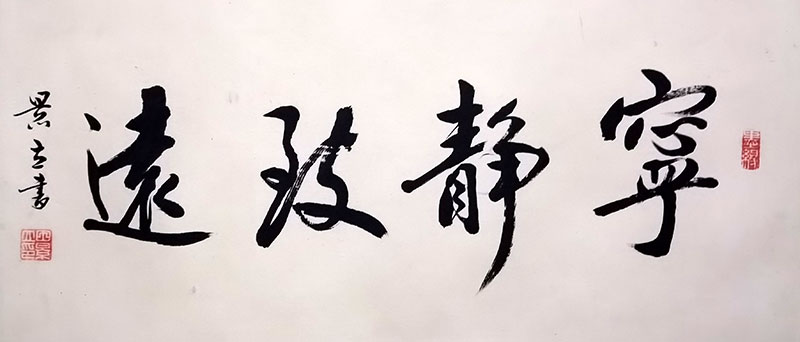 寧靜致遠
景立書